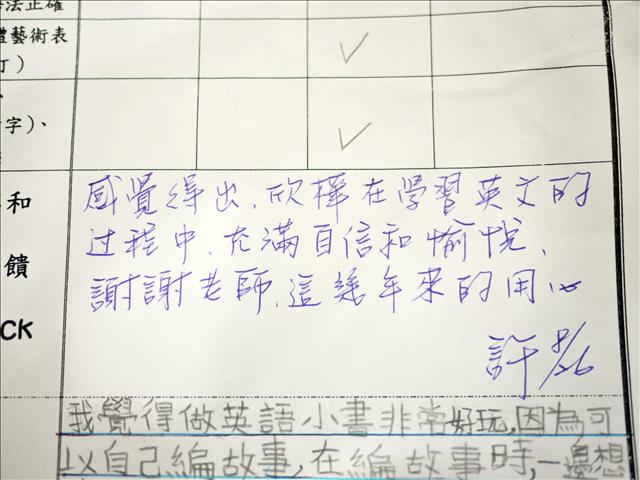 法正確
體藝術表
訂)
字)、
感覺得出,欣樺在學習英文的
和
过程中,充滿自信和愉悅,
饋
謝謝老師,這幾年來的用心
CK
許
我覺得做英語小書非常好玩,因為可
以自己編故事,在編故事時,一邊想